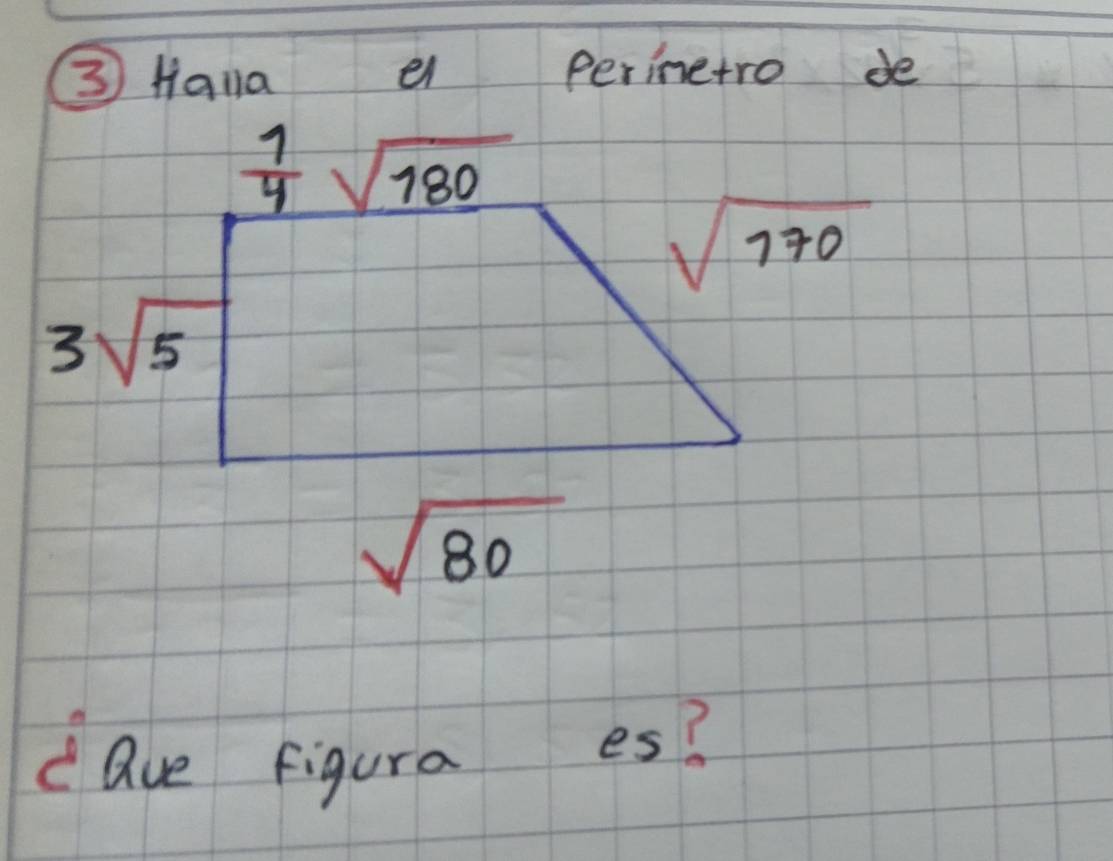 ③ Halla el Perímetro de
1/4 √180
√170
3√5
√80
¿Que figura es?